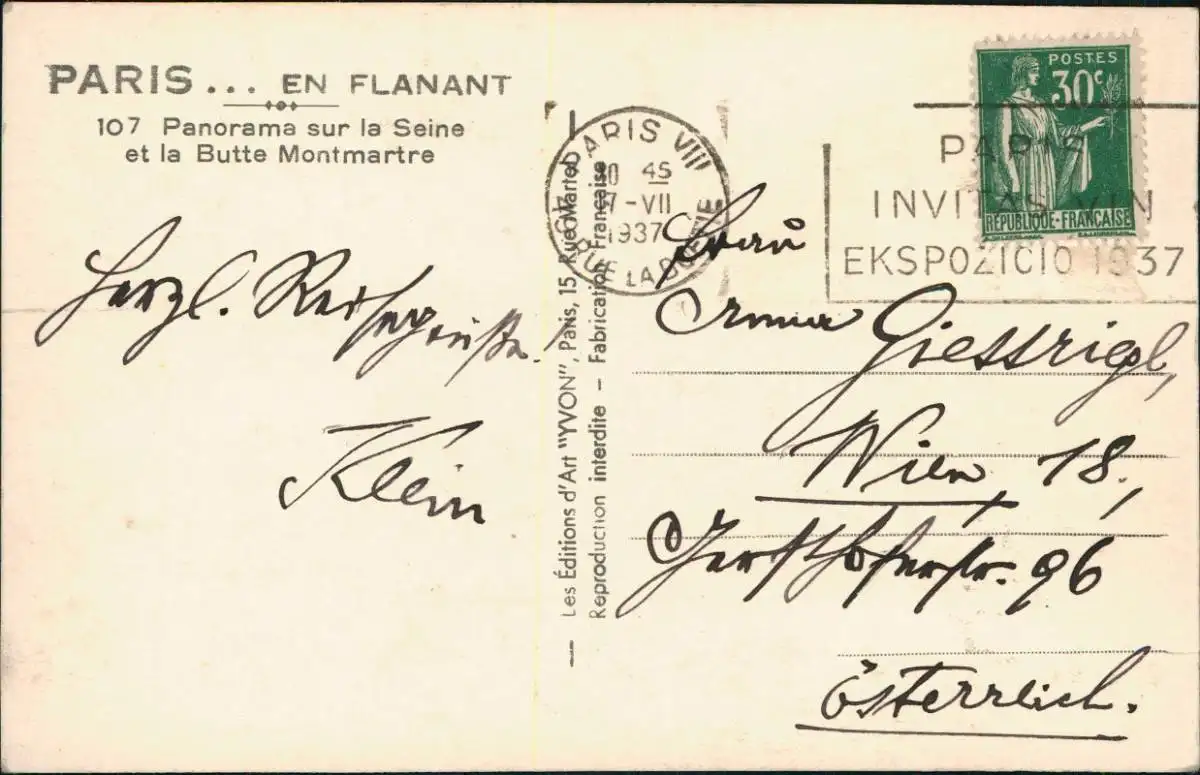 PARIS... EN FLANANT
107 Panorama sur la Seine
et la Butte Montmartre
Herzl. Reisegrüße.
Klein
Les Éditions d'Art "YVON", Paris, 15, Rue Martel
Reproduction interdite – Fabrication Française
PARIS VIII
45
7-VII
1937
RUE LA BOETIE
POSTES
30c
RÉPUBLIQUE-FRANÇAISE
PARIS
INVITAS VIN
EKSPOZICIO 1937
Frau
Irma Giessrigl,
Wien 18.,
Gersthoferstr. 96
Österreich.